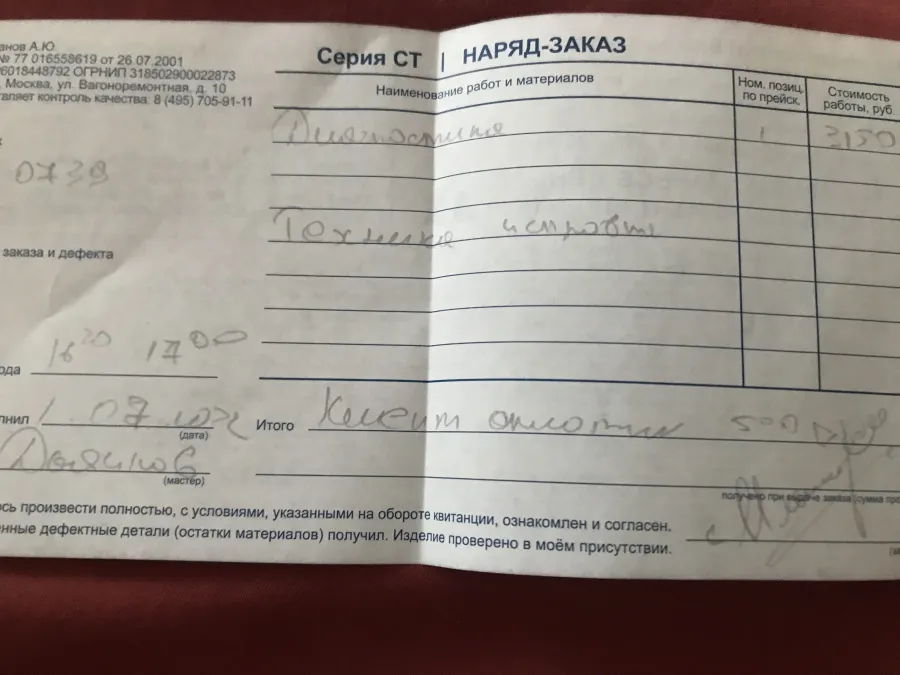 анов А.Ю.
№ 77 016558619 от 26.07.2001
6018448792 ОГРНИП 318502900022873
Москва, ул. Вагоноремонтная, д. 10
вляет контроль качества: 8 (495) 705-91-11
Серия СТ | НАРЯД-ЗАКАЗ
Наименование работ и материалов
Ном. позиц. по прейск.
Стоимость работы, руб.
Диагностика 1 3150
0739
Техника исправна
заказа и дефекта
16 20 17 00
ода
лнил 1 07 (дата)
Итого Клиент оплатил 500
(мастер)
получено при выдаче заказа (сумма про
ось произвести полностью, с условиями, указанными на обороте квитанции, ознакомлен и согласен.
енные дефектные детали (остатки материалов) получил. Изделие проверено в моём присутствии.